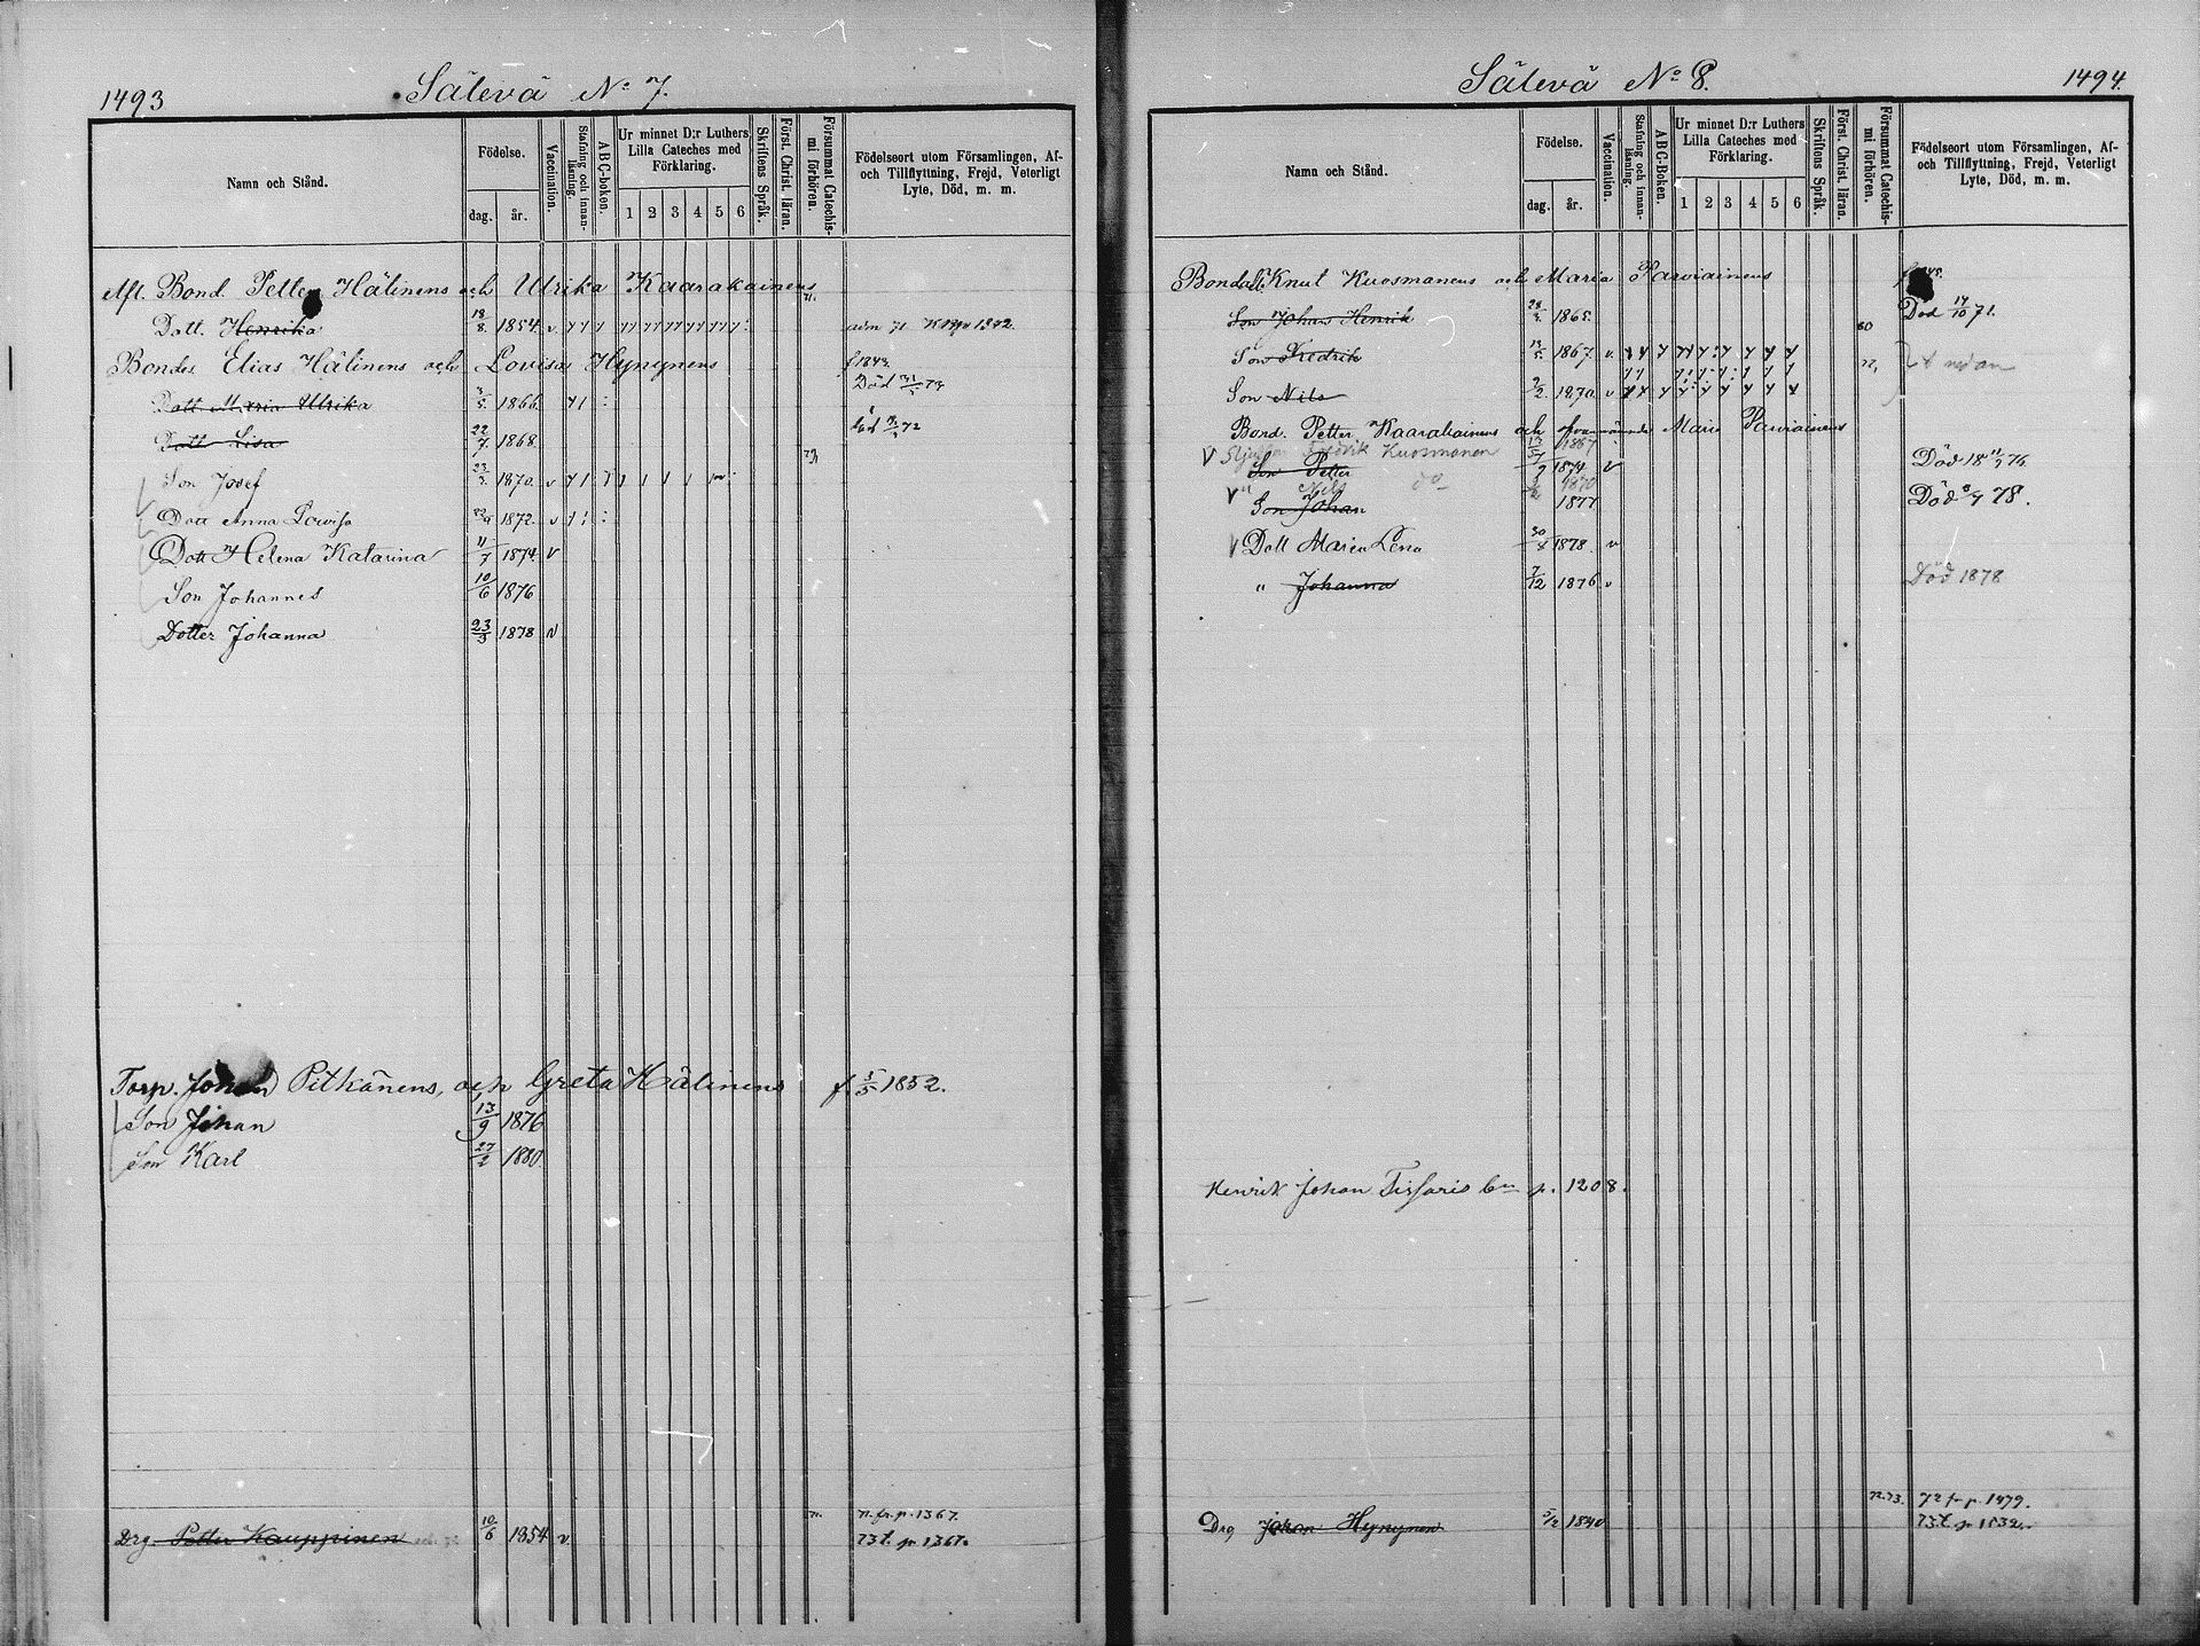 1493
Sälevä No 7.
Namn och Stånd.
Födelse.
dag.
år.
Vaccination.
Stafning och innanläsning.
ABC-boken.
Ur minnet D:r Luthers Lilla Cateches med Förklaring.
1 2 3 4 5 6
Skriftens Språk.
Först. Christ. läran.
Försummat Catechismi förhören.
Födelseort utom Församlingen, Af- och Tillflyttning, Frejd, Veterligt Lyte, Död, m. m.
Aft. Bond. Petter Hälinens och Ulrika Kaarakainens
Dott. Henrika 18/8. 1854. v. 71.
Bondes Elias Hälinens och Lovisa Hynynens f 1843.
Dott Maria Ulrika 3/5. 1866. Död
Dott Lisa 22/7. 1868. 72
Son Josef 23/3. 1870. v
Dott Anna Lovisa 1872. v
Dott Helena Katarina 11/7 1874. v
Son Johannes 10/6 1876
Dotter Johanna 23/3 1878 v
Torp. Johan Pitkänens, och Greta Hälinens f. 1852.
Son Johan 13/9 1876
Son Karl 27/2 1880
Drg. Petter Kauppinen 10/6 1854 v. 71. fr. p. 1367.
73 t. p 1367.
Sälevä No 8.
1494.
Namn och Stånd.
Födelse.
dag.
år.
Vaccination.
Stafning och innanläsning.
ABC-Boken.
Ur minnet D:r Luthers Lilla Cateches med Förklaring.
1 2 3 4 5 6
Skriftens Språk.
Först. Christ. läran.
Försummat Catechismi förhören.
Födelseort utom Församlingen, Af- och Tillflyttning, Frejd, Veterligt Lyte, Död, m. m.
Knut Kuosmanens och Maria Parviainens
Son Johan Henrik 1865. Död 14/10 71.
Son Fredrik 13/5. 1867. v. nedan
Son Nils 2/2. 1870. v
Bond. Petter Kaarakainens och Maria Parviainens
Fredrik Kuosmanen 13/5 1867
Son Petter 1874 v Död 18 76.
" Nils do 1870
Son Johan 1877 Död 78.
Dott Maria Lena 1878. v
" Johanna 7/12 1876 v Död 1878
Henrik Johan p. 1208.
Drg Johan Hynynen 5/2 1840 72.73. 72 fr p. 1479.
73 t. p 1532.